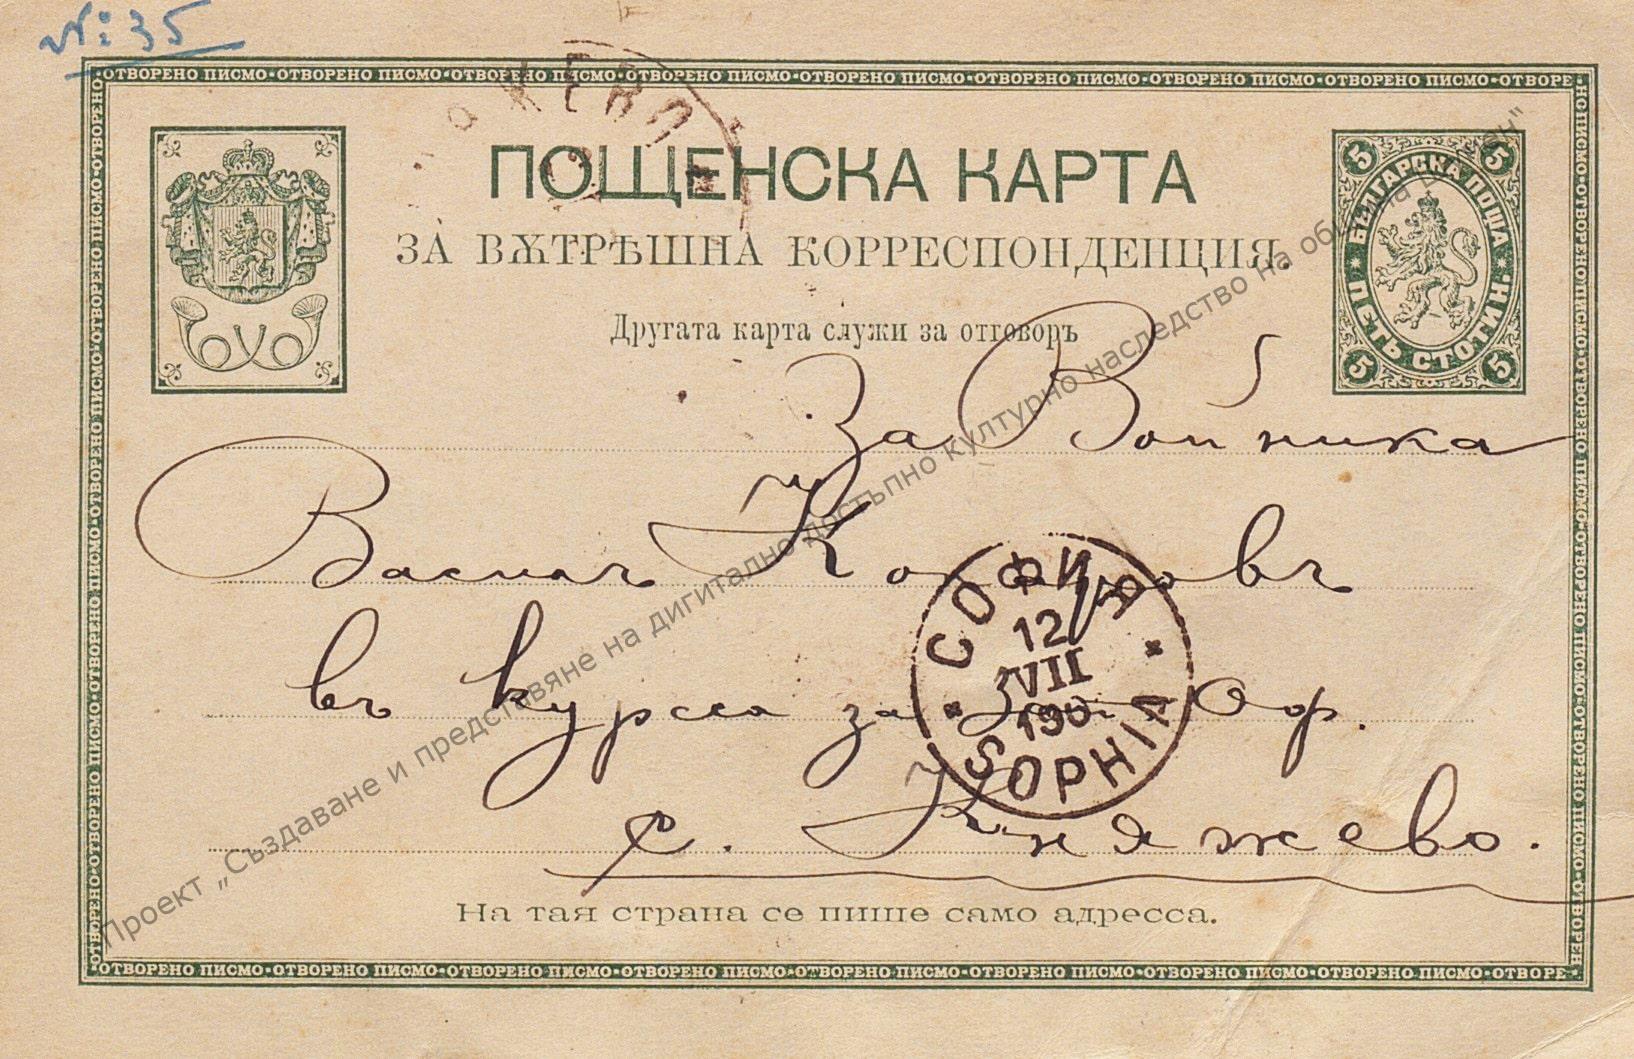 №: 35
ОТВОРЕНО ПИСМО·ОТВОРЕНО ПИСМО·ОТВОРЕНО ПИСМО·ОТВОРЕНО ПИСМО·ОТВОРЕНО ПИСМО·ОТВОРЕНО ПИСМО·ОТВОРЕНО ПИСМО·ОТВОРЕНО ПИСМО·ОТВОРЕ
ПОЩЕНСКА КАРТА
ЗА ВѪТРѢШНА КОРРЕСПОНДЕНЦИЯ.
Другата карта служи за отговоръ
5 5
БЪЛГАРСКА ПОЩА
ПЕТЬ СТОТИН.
5 5
За Войника
Василъ
въ курса за Оф.
с. Княжево.
СОФИЯ
12
VII
190
SOPHIA
На тая страна се пише само адресса.
ОТВОРЕНО ПИСМО·ОТВОРЕНО ПИСМО·ОТВОРЕНО ПИСМО·ОТВОРЕНО ПИСМО·ОТВОРЕНО ПИСМО·ОТВОРЕНО ПИСМО·ОТВОРЕНО ПИСМО·ОТВОРЕНО ПИСМО·ОТВОРЕ
Проект „Създаване и представяне на дигитално достъпно културно наследство на община